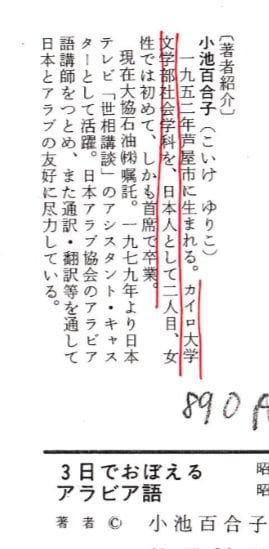 〔著者紹介〕
小池百合子(こいけ ゆりこ)
一九五二年芦屋市に生まれる。カイロ大学
文学部社会学科を、日本人として二人目、女
性では初めて、しかも首席で卒業。
現在大協石油㈱嘱託。一九七九年より日本
テレビ「世相講談」のアシスタント・キャス
ターとして活躍。日本アラブ協会のアラビア
語講師をつとめ、また通訳・翻訳等を通して
日本とアラブの友好に尽力している。
890
3日でおぼえる
アラビア語
昭
昭
著者 © 小池百合子